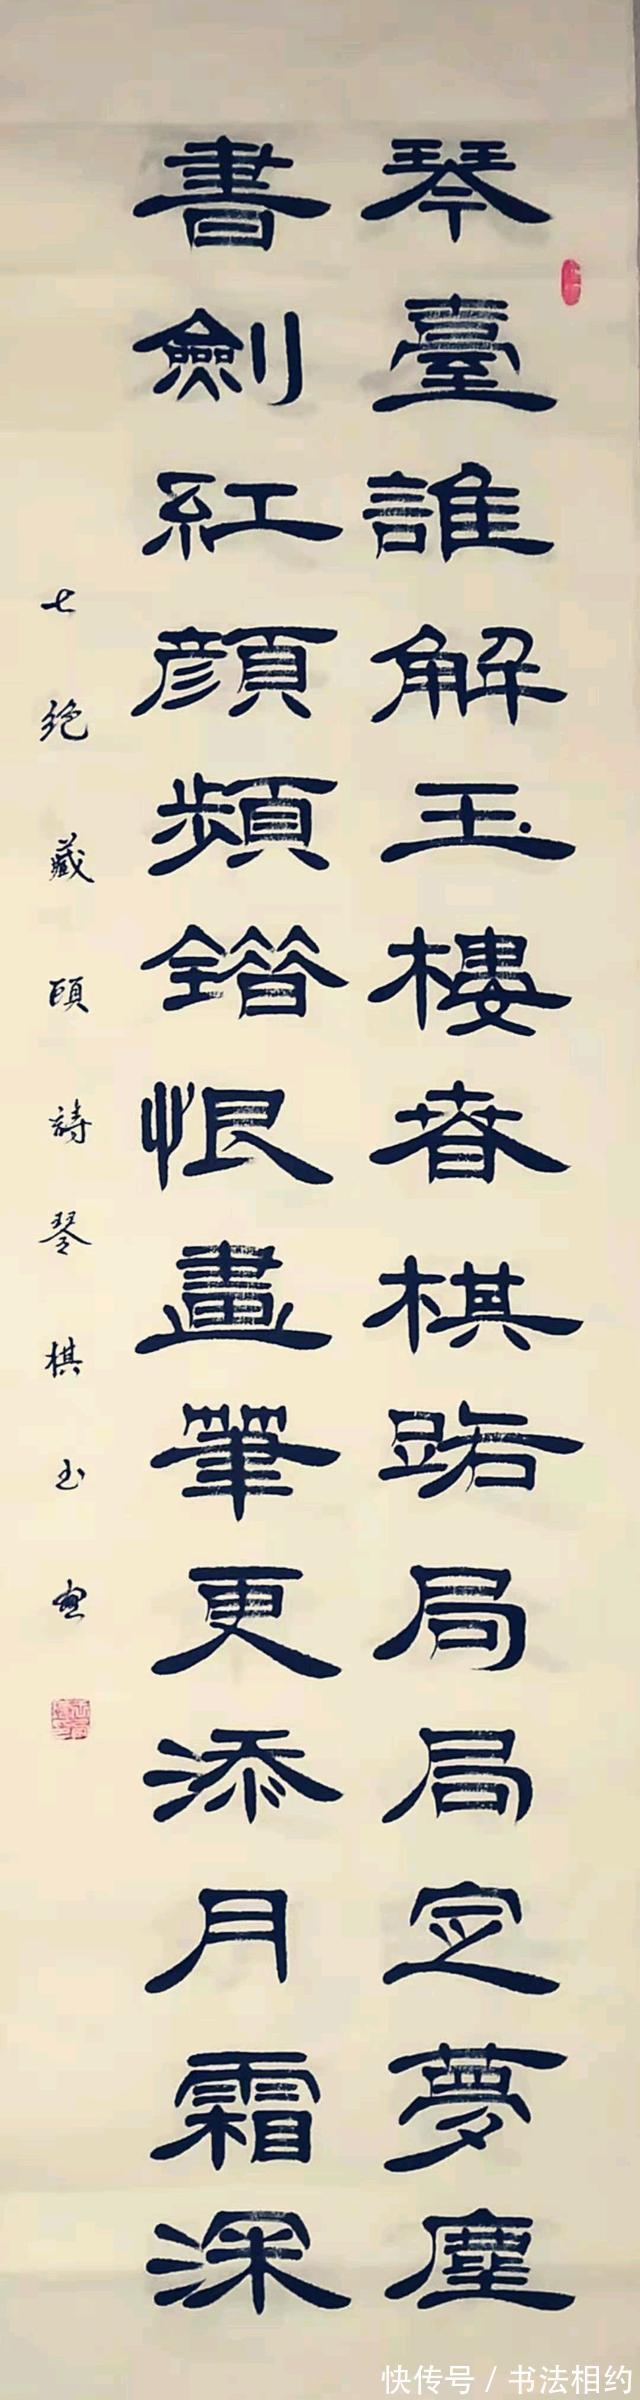 琴臺誰解玉樓春棋路局局定夢塵
書劍紅顏頻錯恨畫筆更添月霜深
七絕藏頭詩琴棋书畫
快传号 / 书法相约